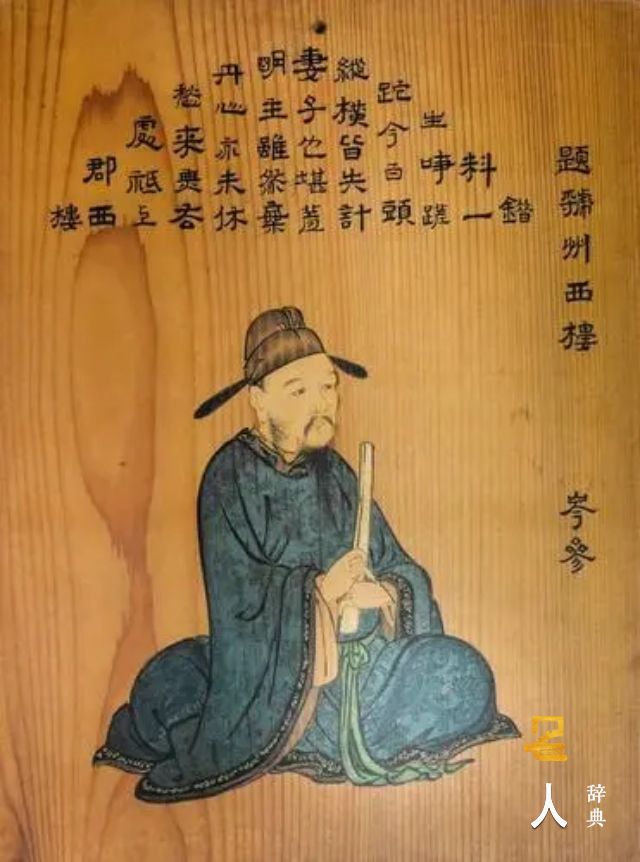 題虢州西樓
岑參
錯
料一
生事蹉
跎今白頭
縱橫皆失計
妻子也堪羞
明主雖然棄
丹心亦未休
愁來無去
處祗上
郡西
樓
人
辞典